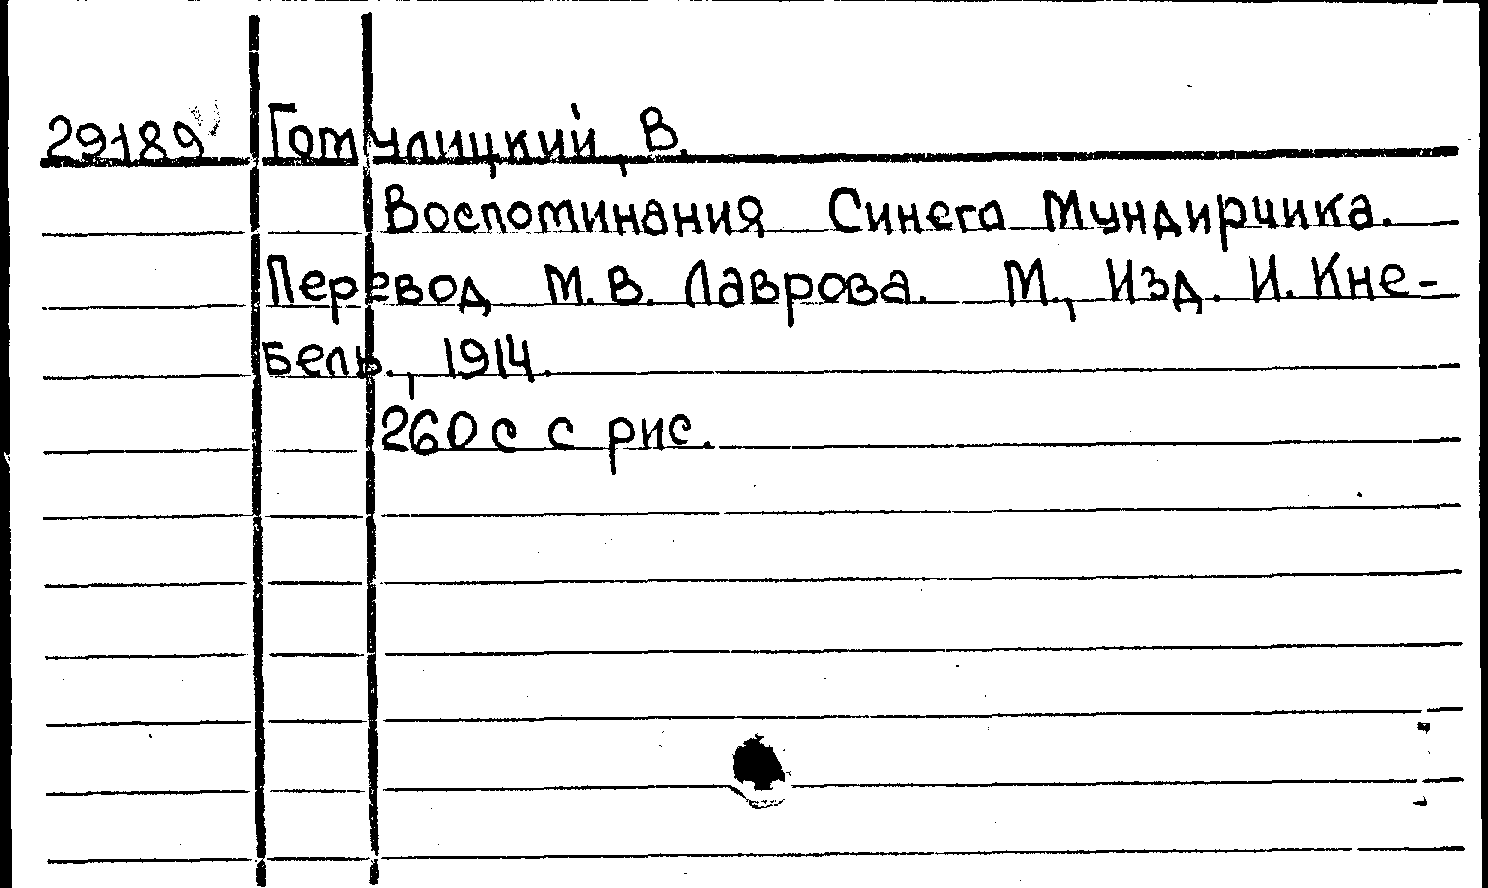 29189 Готулицкий, В.
Воспоминания Синего Мундирчика.
Перевод М.В. Лаврова. М., Изд. И. Кне-
бель., 1914.
260 с с рис.